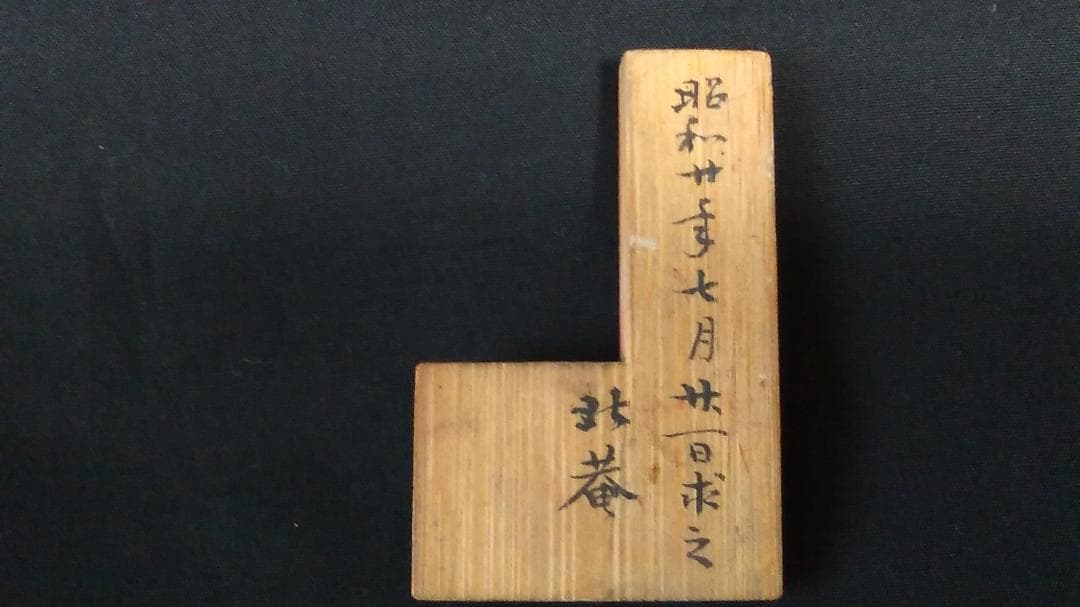 昭和廿年七月廿一日求之
北菴